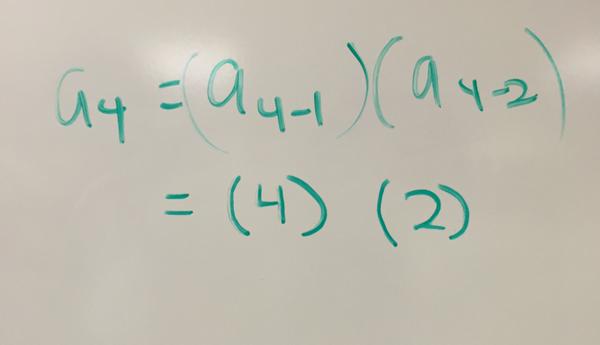 a₄ = (a₄₋₁)(a₄₋₂)
= (4) (2)